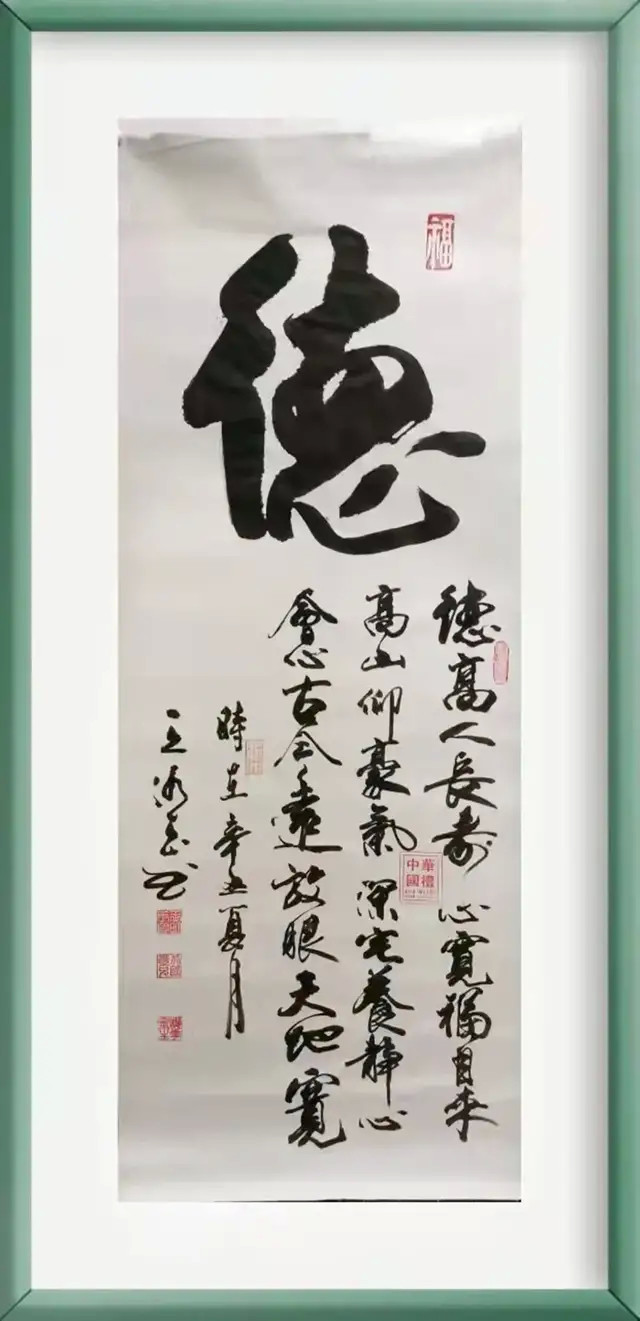 德
福
德高人長壽心寬福自来
高山仰豪氣深宅養静心
會心古今遠放眼天地寬
時在辛丑夏月
書
中華
國禮